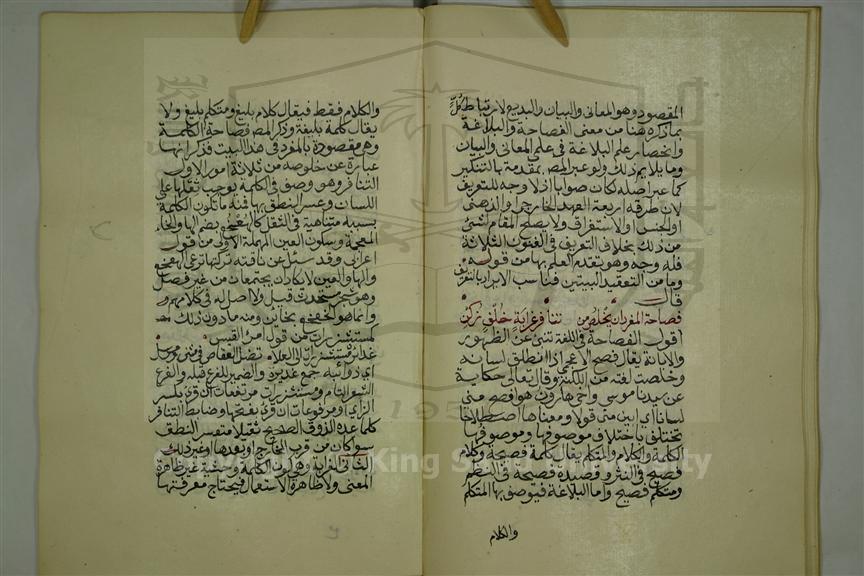 المقصود وهو المعاني والبيان والبديع لارتباط كل
بما ذكره هنا من معنى الفصاحة والبلاغة
وانحصار علم البلاغة في علمي المعاني والبيان
وما يلايم ذلك ولو عبر المص بمقدمة بالتنكير
كما عبر اصله لكان صوابا اذ لا وجه للتعريف
لان طرقه اربعة العهد الخارجي او الذهني
او الجنس او الاستغراق ولا يصلح المقام لشئ
من ذلك بخلاف التعريف في الفنون الثلاثة
فله وجه وهو تقدم العلم بها من قوله
وما من التعقيد البيتين فناسب الايراد بالتعريف
قال
فصاحة المفرد ان يخلص من تنافر غرابة خلف زكن
اقول الفصاحة في اللغة تنبئ عن الظهور
والابانة يقال فصح الاعجمي اذا انطلق لسانه
وخلصت لغته من اللكنة وقال تعالى حكاية
عن سيدنا موسى واخي هارون هو افصح مني
لسانا اي ابين مني قولا ومعناها اصطلاحا
تختلف باختلاف موصوفها وموصوفها
الكلمة والكلام والمتكلم يقال كلمة فصيحة وكلام
فصيح في النثر وقصيدة فصيحة في النظم
ومتكلم فصيح واما البلاغة فيوصف بها المتكلم
والكلام
والكلام فقط فيقال كلام بليغ ومتكلم بليغ ولا
يقال كلمة بليغة وذكر المص فصاحة الكلمة
وهي مقصودة بالمفرد في هذا البيت فذكر انها
عبارة عن خلوصه من ثلاثة امور الاول
التنافر وهو وصف في الكلمة يوجب ثقلها على
اللسان وعسر النطق بها فمنه ما تكون الكلمة
بسببه متناهية في الثقل كالهعخع بضم الها والخاء
المعجمة وسكون العين المهملة الاولى من قول
اعرابي وقد سئل عن ناقته تركتها ترعى الهعخع
والها والعين لا يكادان يجتمعان من غير فصل
وهو شجر مستحدث قيل ولا اصل له في كلامهم
وانما هو الخعخع بخاين ومنه ما دون ذلك
كمستشزرات من قول امرئ القيس
غدائره مستشزرات الى العلا تضل العقاص في مثنى ومرسل
اي ذوائبه جمع غديرة والضمير للفرع قبله والفرع
الشعر التام ومستشزرات مرتفعات ان قرئ بكسر
الزاي او مرفوعات ان قرئ بفتحها وضابط التنافر
كلما عده الذوق الصحيح ثقيلا متعسر النطق
سواء كان من قرب المخارج او بعدها او غير ذلك
الثاني الغرابة وهي كون الكلمة وحشية غير ظاهرة
المعنى ولا ظاهرة الاستعمال فيحتاج معرفتها
King Saud University
195